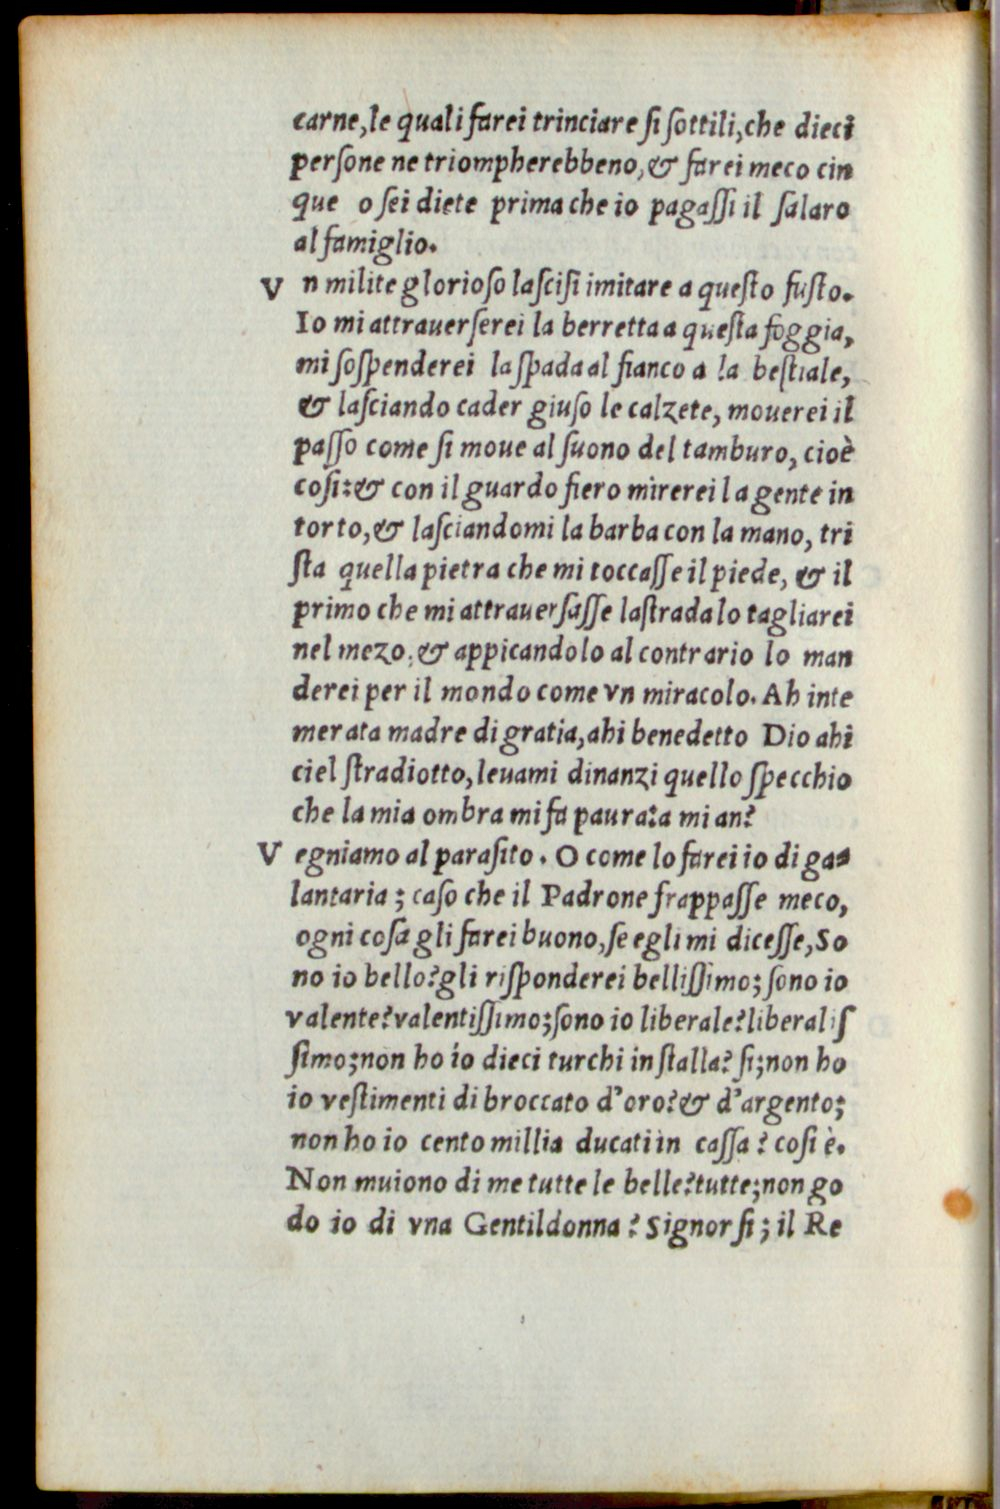 carne, le quali farei trinciare si sottili, che dieci
persone ne triompherebbeno, & farei meco cin
que o sei diete prima che io pagassi il salaro
al famiglio.
Vn milite glorioso lascisi imitare a questo fusto.
Io mi attrauerserei la berretta a questa foggia,
mi sospenderei la spada al fianco a la bestiale,
& lasciando cader giuso le calzete, mouerei il
passo come si moue al suono del tamburo, cioè
cosi: & con il guardo fiero mirerei la gente in
torto, & lasciandomi la barba con la mano, tri
sta quella pietra che mi toccasse il piede, & il
primo che mi attrauersasse la strada lo tagliarei
nel mezo, & appicandolo al contrario lo man
derei per il mondo come vn miracolo. Ah inte
merata madre di gratia, ahi benedetto Dio ahi
ciel stradiotto, leuami dinanzi quello specchio
che la mia ombra mi fa paura: a mi an?
Vegniamo al parasito. O come lo farei io di ga-
lantaria; caso che il Padrone frappasse meco,
ogni cosa gli farei buono, se egli mi dicesse, So
no io bello? gli risponderei bellissimo; sono io
valente? valentissimo; sono io liberale? liberalis
simo; non ho io dieci turchi in stalla? si; non ho
io vestimenti di broccato d'oro? & d'argento;
non ho io cento millia ducati in cassa? cosi è.
Non muiono di me tutte le belle? tutte; non go
do io di vna Gentildonna? Signor si; il Re